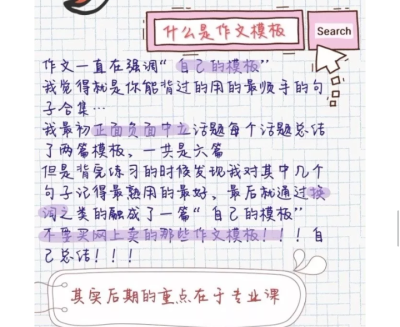 什么是作文模板
Search
作文一直在强调“自己的模板”
我觉得就是你能背过的用的最顺手的句
子合集…
我最初正面负面中立话题每个话题总结
了两篇模板，一共是六篇
但是背完练习的时候发现我对其中几个
句子记得最熟用的最好，最后就通过换
词之类的融成了一篇“自己的模板”
不要买网上卖的那些作文模板！！！自
己总结！！！
其实后期的重点在于专业课